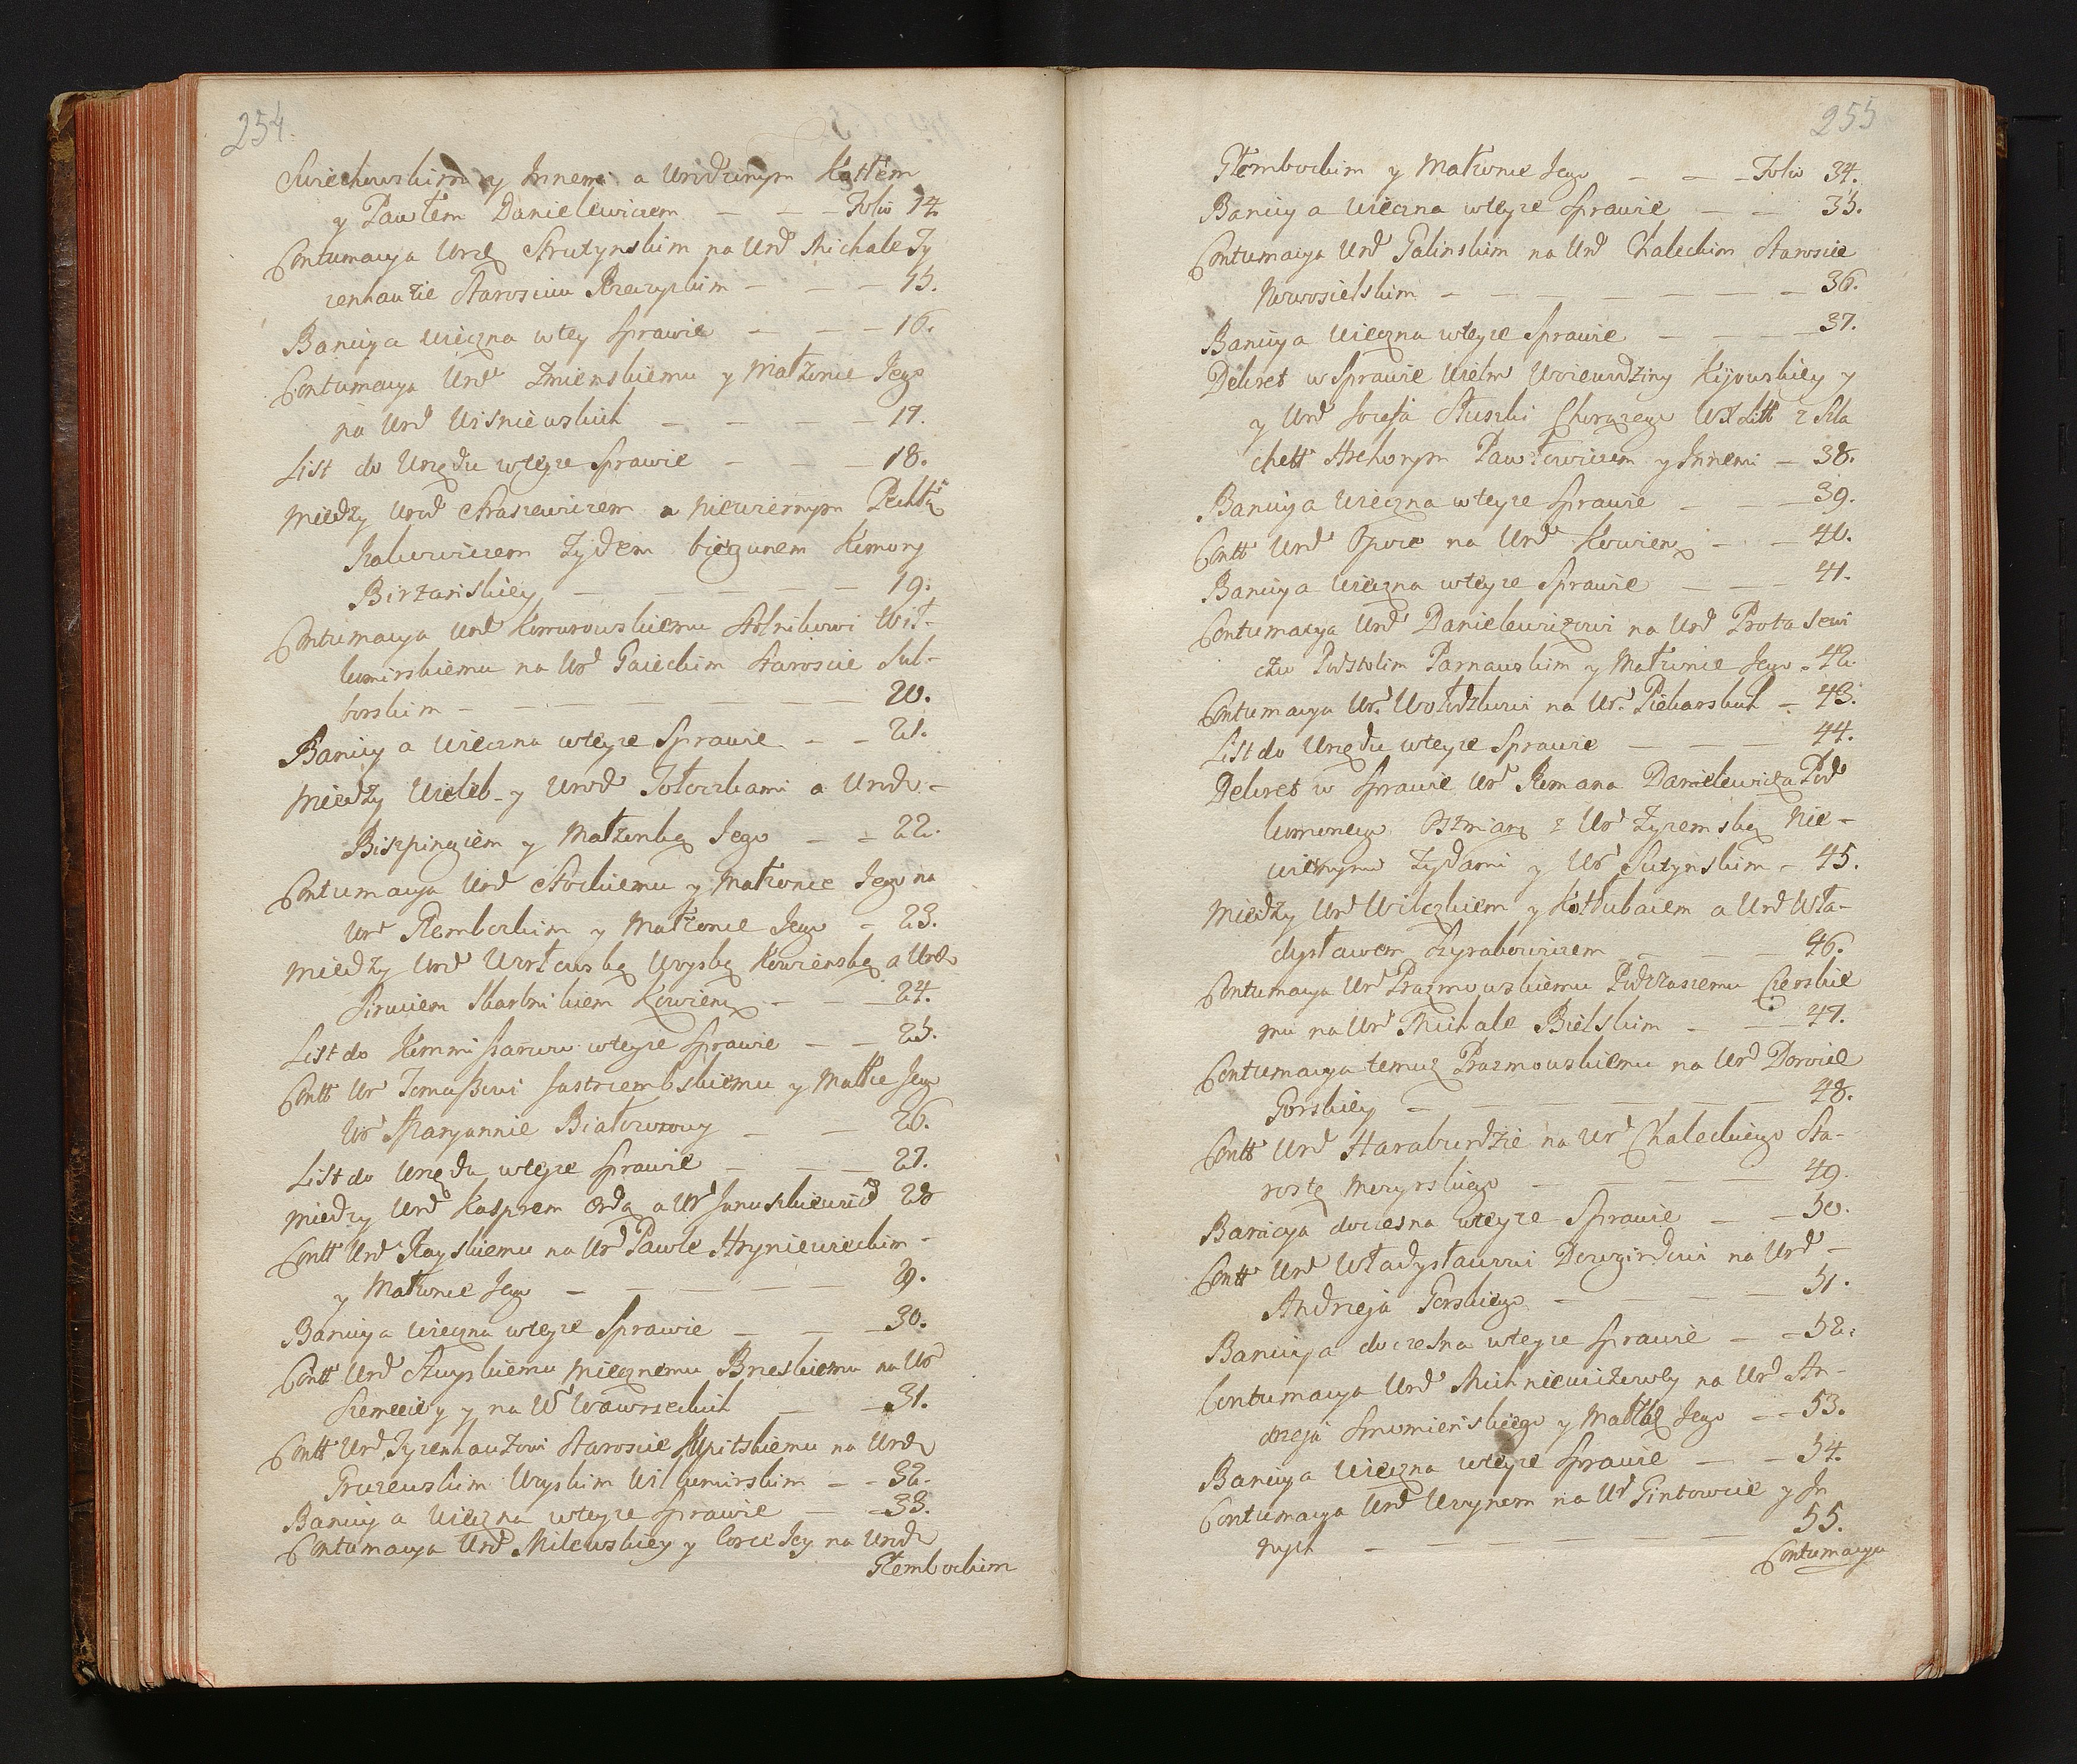 254.
Swiechowskim y Innemi a Urodzonym Kottem
y Pawłem Danielewiczem — — — Folio 14.
Contumacya Urdz Strutynskim na Urd Michale Ty
zenhauzie Starosciu — — — 15.
Banicya wieczna wtey Sprawie — — — 16.
Contumacya Urd Zmiemskiemu y Małżonce Jego
na Urd Wisniewskich — — — — 17.
List do Urzędu wteyze Sprawie — — — 18.
Miedzy Urod Staszewiczem a Niewiernym
Żydem biegunem Komory
Birżańskiey — — — — — 19.
Contumacya Urd Komorowskiemu Stolnikowi Wił-
komirskiemu na Ur Gaieckim Staroscie Sul-
borskim — — — — — — — 20.
Banicya wieczna wteyze Sprawie — — 21.
Miedzy Wieleb. y Urod Tołoczkami a Urodz -
Biszpingiem y Małżonką Jego — — 22.
Contumacya Urd Stockiemu y Małżonce Jego na
Ur Głembockim y Małżonce Jego — 23.
Miedzy Urd Woyską Kowieńską a Urdz
Skarbnikiem Kowień — — — 24.
List do Kommissarzow wteyze Sprawie — — 25.
Contt Ur Tomaszowi Jastrzembskiemu y Małce Jego
Ur Maryannie Białłozorowy — — 26.
List do Urzędu wteyze Sprawie — — — 27.
Miedzy Urd Kasprem Ordą a Ur Januszkiewicz 28
Contt Urd Rayskiemu na Ur Pawle Hryniewieckim -
y Małżonce Jego — — — — — 29.
Banicya wieczna wteyze Sprawie — — — 30.
Contt Urd Miecznemu Brzeskiemu na Ur
y na Ur Wawrzeckich — — 31.
Contt Urd Tyzenhauzowi Staroscie Upitskiemu na Urdz
Gruzewskim Woyskim Wilkomirskim — — 32.
Banicya wieczna wteyze Sprawie — — 33.
Contumacya Urd Milewskiey y Corce Jey na Urdz
Głembockim
255
Głembockim y Małżonce Jego — — — Folio 34.
Banicya wieczna wteyze Sprawie — — 35.
Contumacya Urd Galinskim na Urd Chaleckim Staroscie
Nowosielskim — — — — — — 36.
Banicya wieczna wteyze Sprawie — — — — 37.
Dekret w Sprawie Wielm Woiewodziny Kijowskiey y
y Urd Jozefa Słuszki Chorązego WX Litt z Szla
chett Pawłowiczem y Innemi — 38.
Banicya wieczna wteyze Sprawie — — — 39.
Contt Urd na Urd Kowień — — 40.
Banicya wieczna wteyze Sprawie — — — 41.
Contumacya Urd Danielewiczowi na Urd Protasewi
czu Podstolim Parnawskim y Małżonce Jego — 42.
Contumacya Ur. Wołodzkowi na Ur. Piekarskich — 43.
List do Urzędu wteyze Sprawie — — — 44.
Dekret w Sprawie Ur Romana Danielewicza Pod
komorzego Oszmiań z Ur Żyzemską Nie-
wiernymi Żydami y Ur Sutyńskim — 45.
Miedzy Urd Wilczkiem y Kołłubaiem a Urd Wła-
dysławem Szyrakowiczem — — — 46.
Contumacya Ur Prazmowskiemu Podczaszemu Czerskie
mu na Ur Michale Bielskim — — — 47.
Contumacya temuż Prazmowskiemu na Urd Dorocie
Gorskiey — — — — — — 48.
Contt Urd Haraburdzie na Ur Chaleckiego Sta-
rostę Mozyrskiego — — — — — 49.
Banicya doczesna wteyze Sprawie — — 50.
Contt Urd Władysławowi Dowgirdowi na Urd -
Andrzeja Gorskiego — — — — 51.
Banicya doczesna wteyze Sprawie — — 52.
Contumacya Urd Michniewiczowey na Ur An-
drzeja y Małżkę Jego — — 53.
Banicya wieczna wteyze Sprawie — — 54.
Contumacya Urd Woynom na Ur Gintowcie y In
nych — — — — — — — 55.
Contumacya